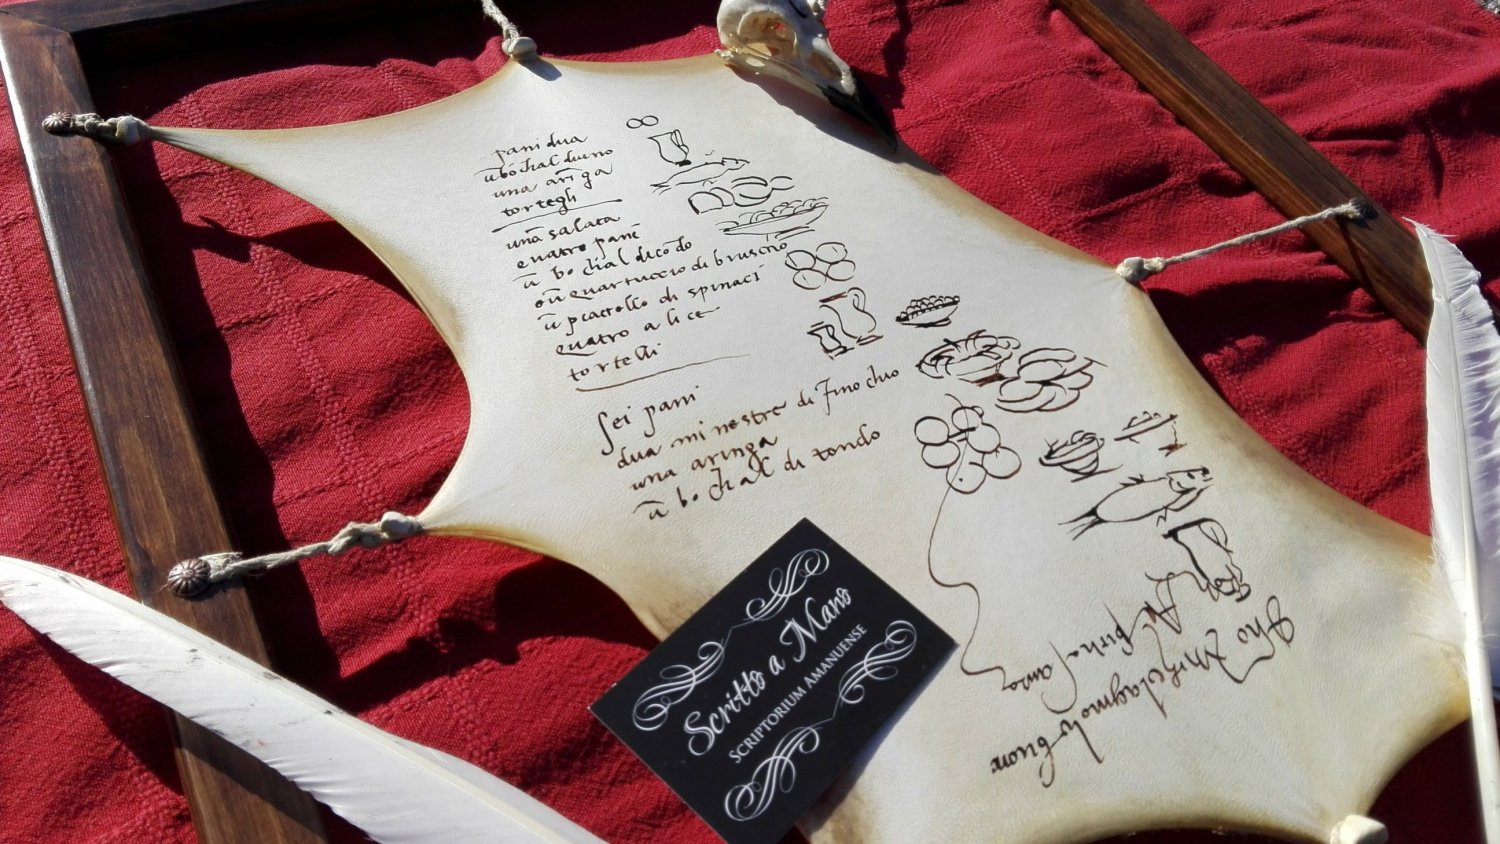 pani dua
ū bochal duino
una aringa
tortegli
una salata
quatro pane
ū bochal di tōdo
quartuccio di bruscho
ū piattello di spinaci
quatro alice
tortelli
sei pani
dua minestre di finochio
una aringa
ū bochal di tondo
Scritto a Mano
SCRIPTORIUM AMANUENSE